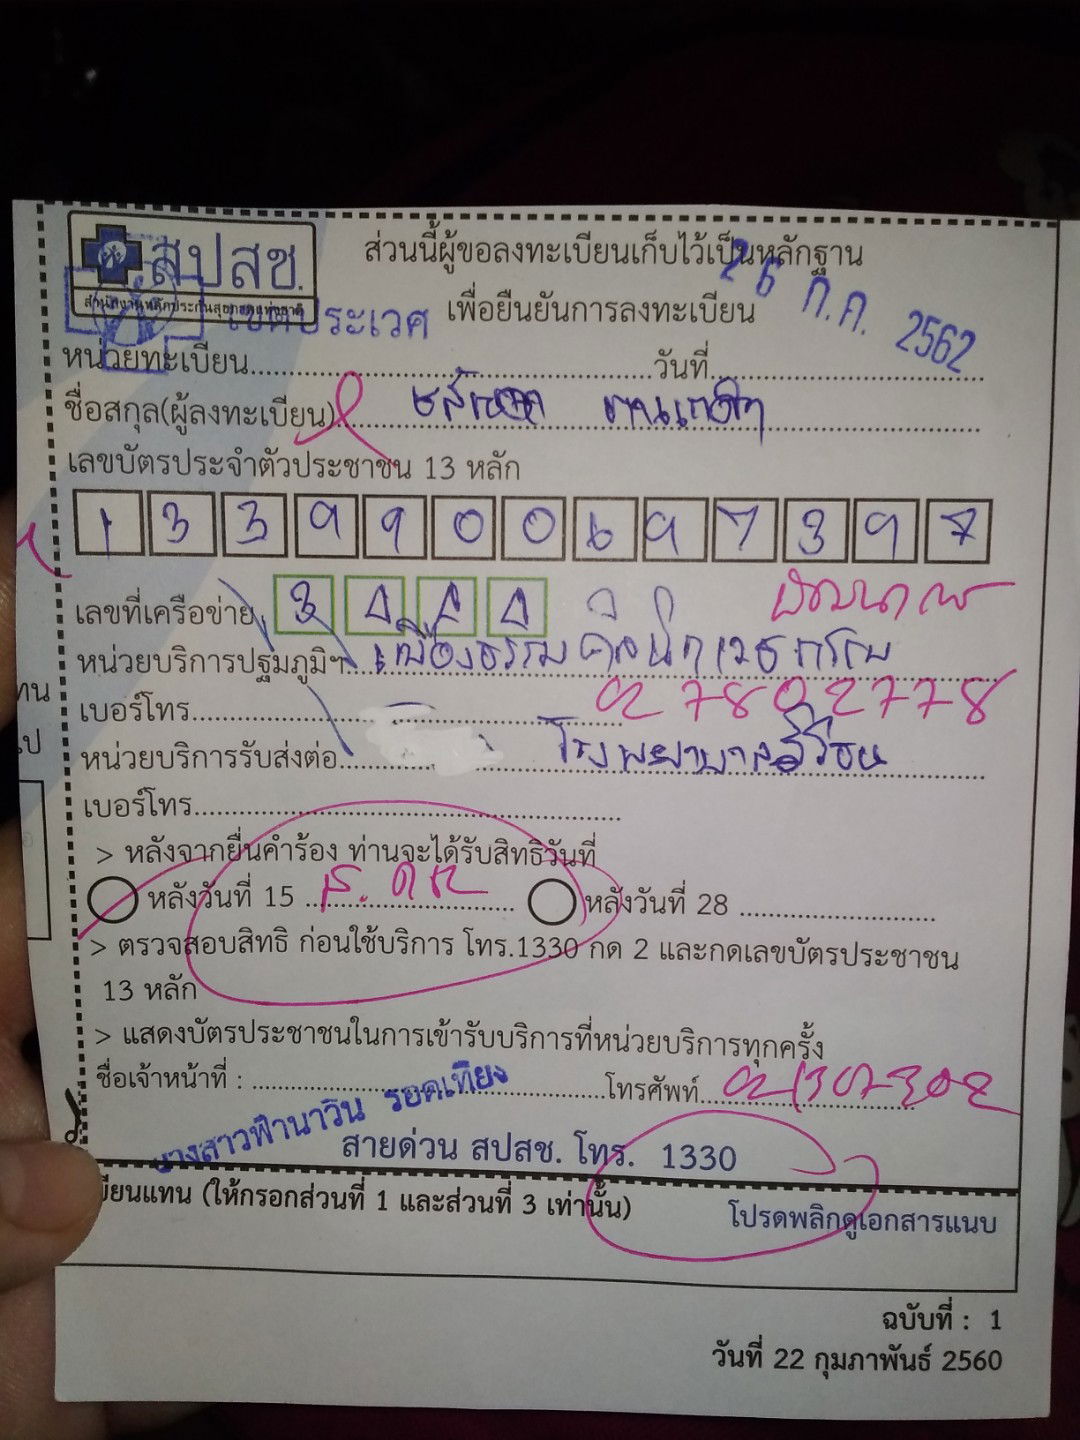 สปสช.
สำนักงานหลักประกันสุขภาพแห่งชาติ
ส่วนนี้ผู้ขอลงทะเบียนเก็บไว้เป็นหลักฐาน
เพื่อยืนยันการลงทะเบียน
26 ก.ค. 2562
เขตประเวศ
หน่วยทะเบียน วันที่
ชื่อสกุล(ผู้ลงทะเบียน)
เลขบัตรประจำตัวประชาชน 13 หลัก
1 3 3 9 9 0 0 6 9 7 3 9 7
เลขที่เครือข่าย 3
หน่วยบริการปฐมภูมิฯ เฟื่องธรรม คลินิกเวชกรรม
เบอร์โทร 02 7802778
หน่วยบริการรับส่งต่อ โรงพยาบาลสิรินธร
เบอร์โทร
> หลังจากยื่นคำร้อง ท่านจะได้รับสิทธิวันที่
หลังวันที่ 15 ส.ค 62 หลังวันที่ 28
> ตรวจสอบสิทธิ ก่อนใช้บริการ โทร.1330 กด 2 และกดเลขบัตรประชาชน
13 หลัก
> แสดงบัตรประชาชนในการเข้ารับบริการที่หน่วยบริการทุกครั้ง
ชื่อเจ้าหน้าที่ : โทรศัพท์
นางสาวฟ้านาวิน รอดเที่ยง
สายด่วน สปสช. โทร. 1330
บียนแทน (ให้กรอกส่วนที่ 1 และส่วนที่ 3 เท่านั้น)
โปรดพลิกดูเอกสารแนบ
ฉบับที่ : 1
วันที่ 22 กุมภาพันธ์ 2560